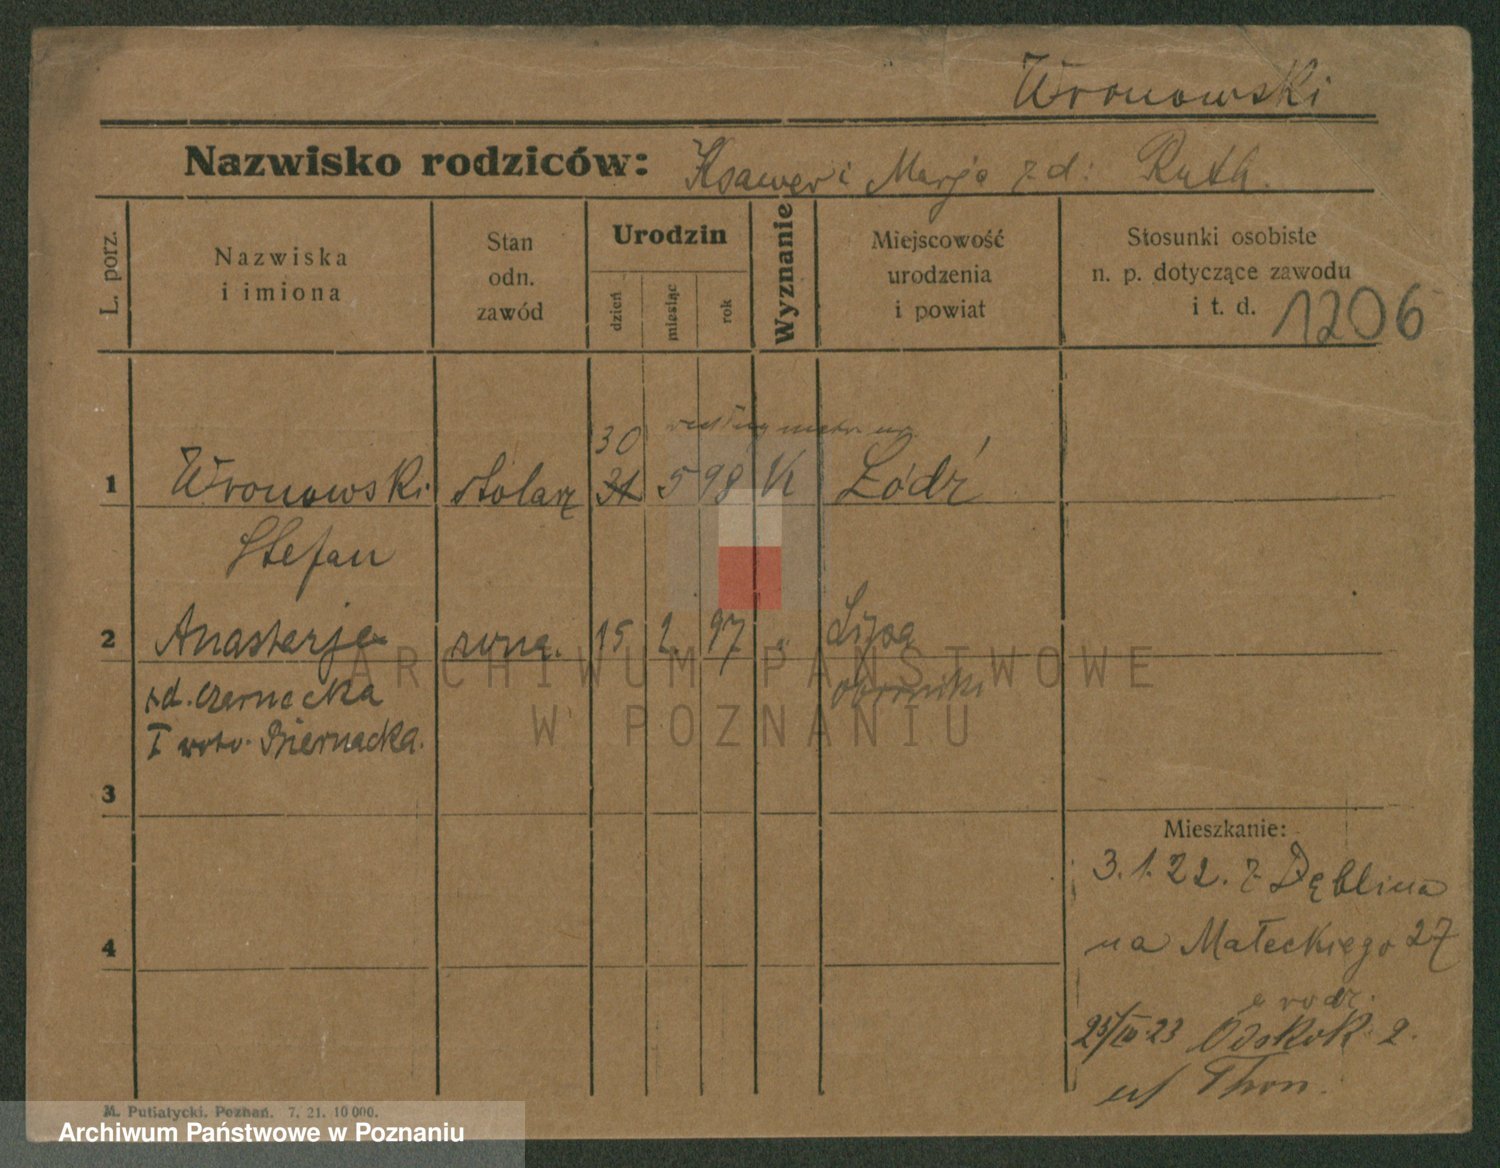 Wronowski
Nazwisko rodziców: Ksawer i Marja z d: Ruth.
L. porz.
Nazwiska
i imiona
Stan
odn.
zawód
Urodzin
dzień
miesiąc
rok
Wyznanie
Miejscowość
urodzenia
i powiat
Stosunki osobiste
n. p. dotyczące zawodu
i t. d.
1206
30 według metr. ur.
1 Wronowski stolarz 31 5 98 K Łódź
Stefan
2 Anastazja żona. 15 2. 97 „
oborniki
zd. Czernecka
I woto. Biernacka.
3
Mieszkanie:
3. 1. 22. z Dęblina
4
na Małeckiego 27
25/ 23 2.
M. Putiatycki, Poznań. 7. 21. 10 000.
ARCHIWUM PAŃSTWOWE
W POZNANIU
Archiwum Państwowe w Poznaniu